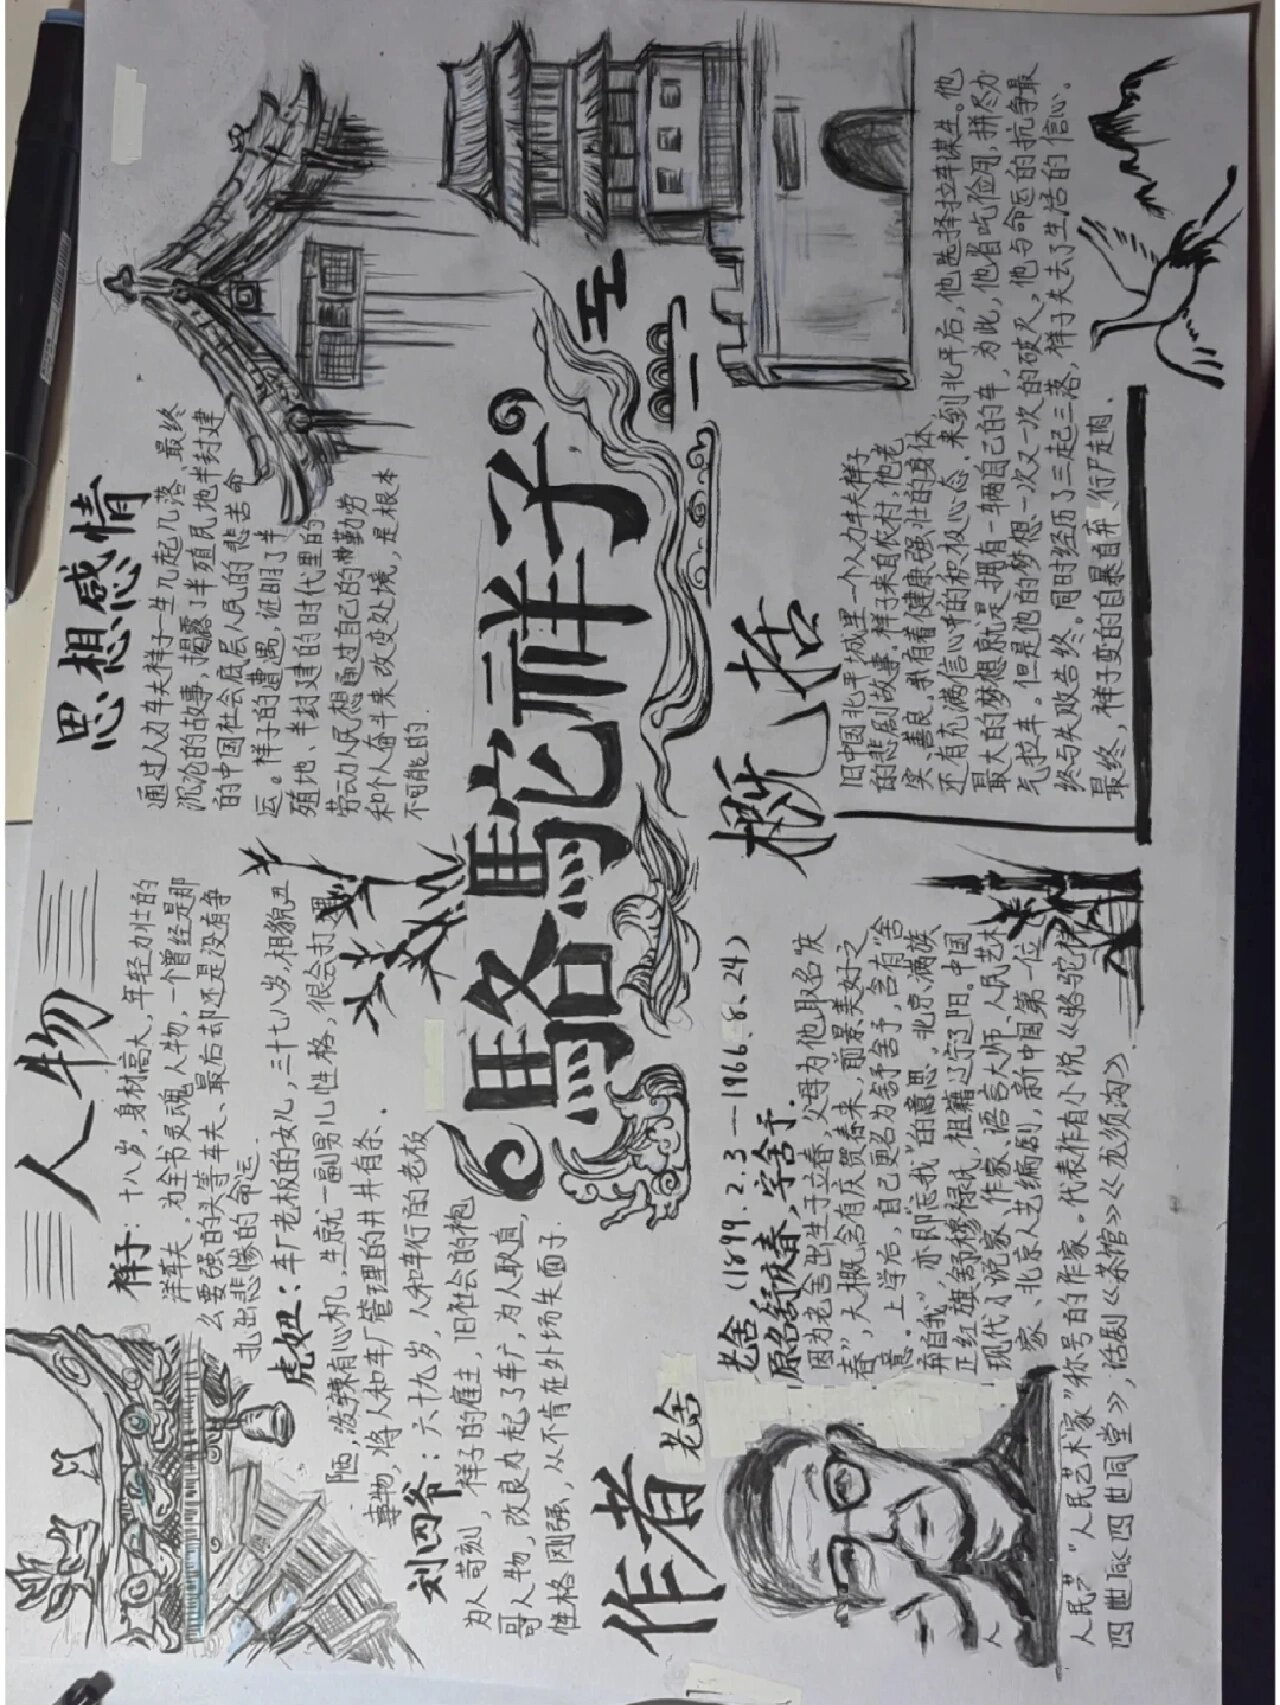 人物
祥子：十八岁，身材高大，年轻力壮的
洋车夫，为全书灵魂人物，一个曾经是那
么要强的头等车夫、最后却还是没有争
扎出悲惨的命运.
虎妞：车厂老板的女儿，三十七八岁，相貌丑
陋，泼辣有心机，生就一副男儿性格，很会打理
事物，将人和车厂管理的井井有条.
刘四爷：六十九岁，人和车行的老板
为人苟刻，祥子的雇主，旧社会的袍
哥人物，改良办起了车厂，为人耿直，
性格刚强，从不肯在外场失面子.
思想感情
通过人力车夫祥子一生几起几落、最终
沉沦的故事，揭露了半殖民地半封建
的中国社会底层人民的悲苦命
运。祥子的遭遇，证明了半
殖地、半封建的时代里的
劳动人民想通过自己的勤劳
和个人奋斗来改变处境，是根本
不可能的.
駱駝祥子
作者
老舍
老舍（1899.2.3—1966.8.24）
原名舒庆春，字舍予.
因为老舍出生于立春，父母为他取名“庆
春”，大概含有庆贺春来，前景美好之
意。上学后，自己更名为舒舍予，含有“舍
弃自我”，亦即“忘我”的意思，北京满族
正红旗舒穆禄氏，祖籍辽宁辽阳。中国
现代小说家、作家，语言大师、人民艺术
家、北京人艺编剧，新中国第一位
人民艺“人民艺术家”称号的作家。代表作有小说《骆驼祥
四世四世同堂》，话剧《茶馆》《龙须沟》
概括
旧中国北平城里一个人力车夫祥子
的悲剧故事，祥子来自农村，他老
实、善良，有着健康强壮的身体
还有充满信心的积极心态，来到北平后，他选择拉车谋生。他
最大的梦想就是拥有一辆自己的车，为此，他省吃俭用，拼尽力
气拉车。但是他的梦想一次又一次的破灭，他与命运的抗争最
终与失败告终。同时经历了三起三落，祥子失去了生活的信心。
最终，祥子变的自暴自弃、行尸走肉.